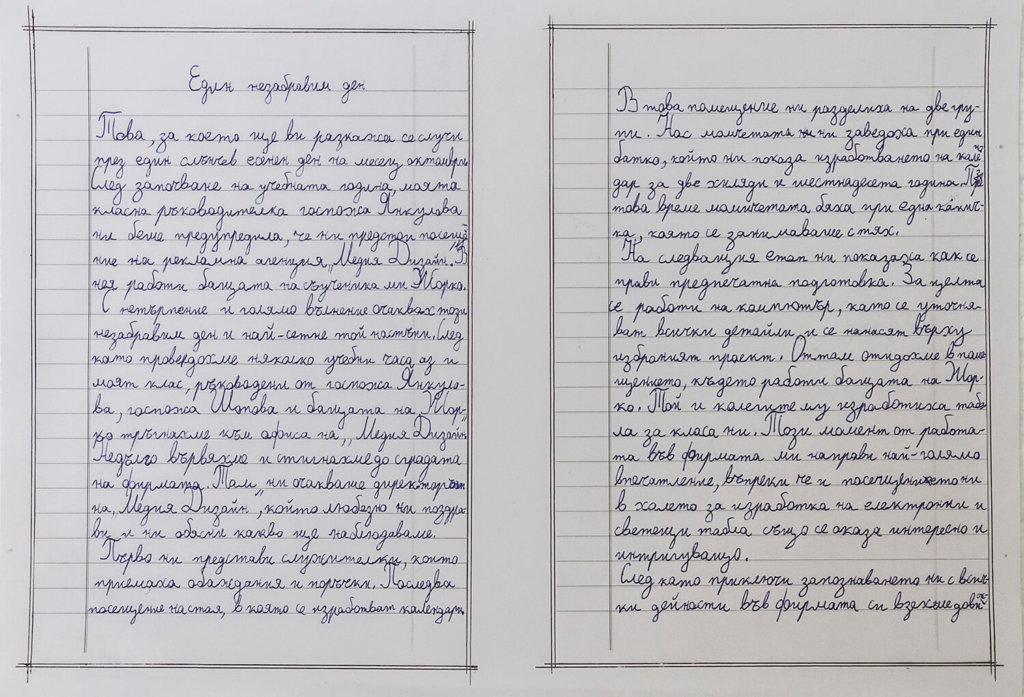 Един незабравим ден
Това, за което ще ви разкажа се случи
през един слънчев есенен ден на месец октомври.
След започване на учебната година, моята
класна ръководителка госпожа Янкулова
ни беше предупредила, че ни предстои посеще-
ние на рекламна агенция „Медия Дизайн“. В
нея работи бащата на съученика ми Жорко.
С нетърпение и голямо вълнение очаквах този
незабравим ден и най-сетне той настъпи. След
като проведохме няколко учебни часа, аз и
моят клас, ръководени от госпожа Янкуло-
ва, госпожа Шопова и бащата на Жор-
ко тръгнахме към офиса на „Медия Дизайн“
Недълго вървяхме и стигнахме до сградата
на фирмата. Там ни очакваше директорът
на „Медия Дизайн“, който любезно ни поздра-
ви и ни обясни какво ще наблюдаваме.
Първо ни представи служителки, които
приемаха обаждания и поръчки. Последва
посещение на стая, в която се изработват календари.
В това помещение ни разделиха на две гру-
пи. Нас момчетата ни заведоха при един
батко, който ни показа изработването на кален-
дар за две хиляди и шестнадесета година. През
това време момичетата бяха при една какич-
ка, която се занимаваше с тях.
На следващия етап ни показаха как се
прави предпечатна подготовка. За целта
се работи на компютър, като се уточня-
ват всички детайли, и се нанасят върху
избраният проект. Оттам отидохме в поме-
щението, където работи бащата на Жор-
ко. Той и колегите му изработиха табе-
ла за класа ни. Този момент от работа-
та във фирмата ми направи най-голямо
впечатление, въпреки че и посещението ни
в халето за изработка на електронни и
светещи табла също се оказа интересно и
интригуващо.
След като приключи запознаването ни с всич-
ки дейности във фирмата си взехме довиж-